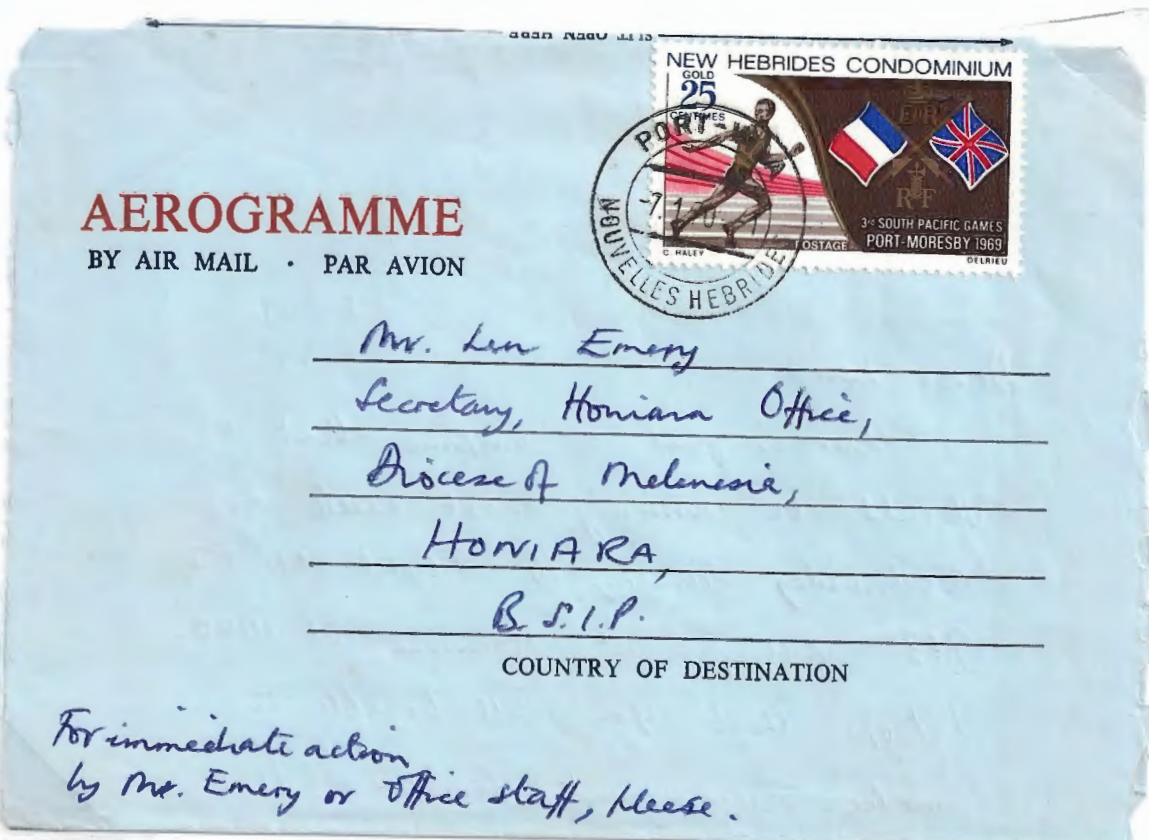 SLIT OPEN HERE
NEW HEBRIDES CONDOMINIUM
GOLD
25
CENTIMES
E II R
RF
3rd SOUTH PACIFIC GAMES
PORT-MORESBY 1969
POSTAGE
C. HALEY
DELRIEU
PORT-VILA
-7.1.70-
NOUVELLES HEBRIDES
AEROGRAMME
BY AIR MAIL · PAR AVION
Mr. Len Emery
Secretary, Honiara Office,
Diocese of Melanesia,
HONIARA,
B.S.I.P.
COUNTRY OF DESTINATION
For immediate action
by Mr. Emery or Office staff, please.